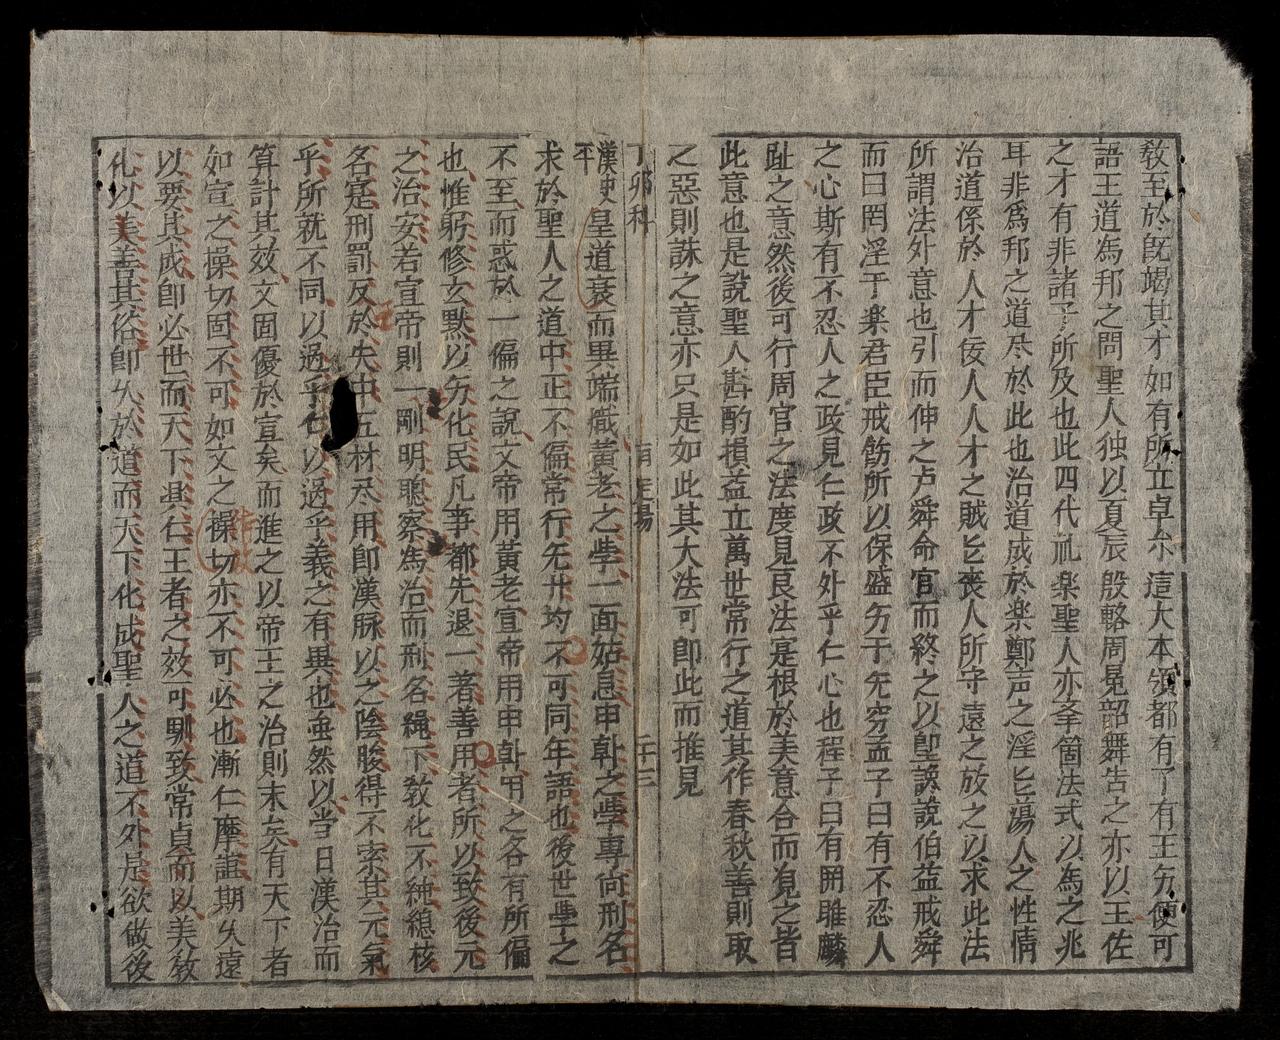 教至於旣竭其才如有所立卓尒這大本領都有了有王佐便可
語王道爲邦之問聖人独以夏辰殷輅周冕韶舞告之亦以王佐
之才有非諸子所及也此四代礼楽聖人亦夆箇法式以爲之兆
耳非爲邦之道尽於此也治道成於楽鄭声之淫能蕩人之性情
治道係於人才佞人人才之賊能喪人所守遠之放之以求此法
所謂法外意也引而伸之卢舜命官而終之以堲讒說伯益戒舜
而曰罔淫于楽君臣戒飭所以保盛治于无窮孟子曰有不忍人
之心斯有不忍人之政見仁政不外乎仁心也程子曰有関雎麟
趾之意然後可行周官之法度見良法寔根於美意合而覌之皆
此意也是說聖人斟酌損益立萬世常行之道其作春秋善則取
之惡則誅之意亦只是如此其大法可即此而推見
丁卯科
二十三
漢史平 皇道衰而異端熾黃老之斈一面姑息申韩之斈專尚刑名
求於聖人之道中正不偏常行无廾均不可同年語也後世斈之
不至而惑於一偏之說文帝用黃老宣帝用申韩用之各有所偏
也惟躬修玄默以为化民凡事都先退一著善用者所以致後元
之治安若宣帝則一剛明聰察爲治而刑名繩下敎化不純緫核
名寔刑罰反於失中五材尽用卽漢脉以之陰脧得不索其元氣
乎所就不同以過乎仁以過乎義之有異也虽然以当日漢治而
算計其效文固優於宣矣而進之以帝王之治則末矣有天下者
如宣之操切固不可如文之操切亦不可必也漸仁摩誼期久遠
以要其成卽必世而天下其仁王者之效可馴致常貞而以美敎
化以美善其俗卽久於道而天下化成聖人之道不外是欲做後